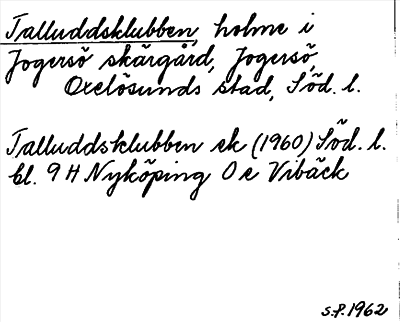 Talluddsklubben, holme i
Jogersö skärgård, Jogersö,
Oxelösunds stad, Söd. l.
Talluddsklubben ek (1960) Söd. l.
bl. 9 H Nyköping O e Vibäck
S.P. 1962